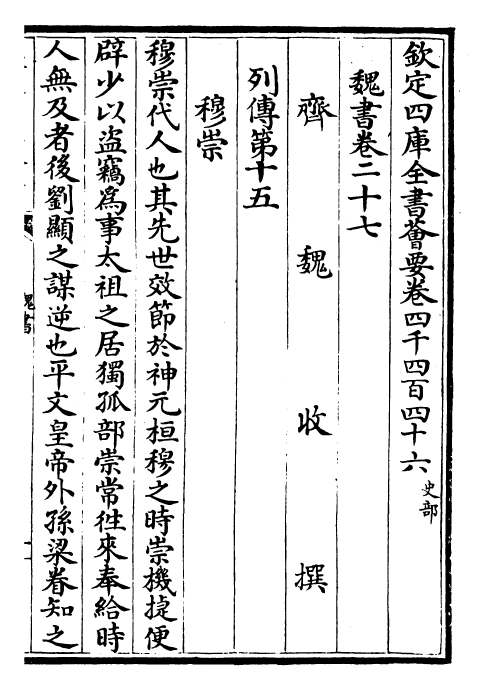 欽定四庫全書薈要卷四千四百四十六史部
魏書卷二十七
齊魏收撰
列傳第十五
穆崇
穆崇代人也其先世效節於神元桓穆之時崇機捷便
辟少以盜竊爲事太祖之居獨孤部崇常徃來奉給時
人無及者後劉顯之謀逆也平文皇帝外孫梁眷知之
魏書